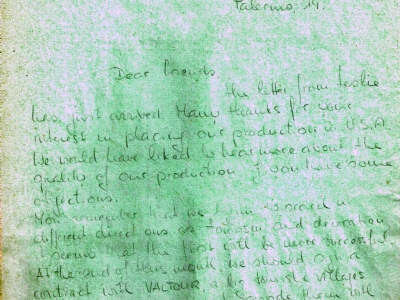 Palermo, 14.
Dear Friends,
the letter from Leslie
has just arrived. Many thanks for your
interest in placing our production in U.S.A.
We would have liked to hear more about the
quality of our production if you have some
objections.
You remember that we to spread in
different directions as tourism and decoration
seems that the first will be more successful.
At the end of this month we should sign a
contract with VALTOUR a big touristic villages